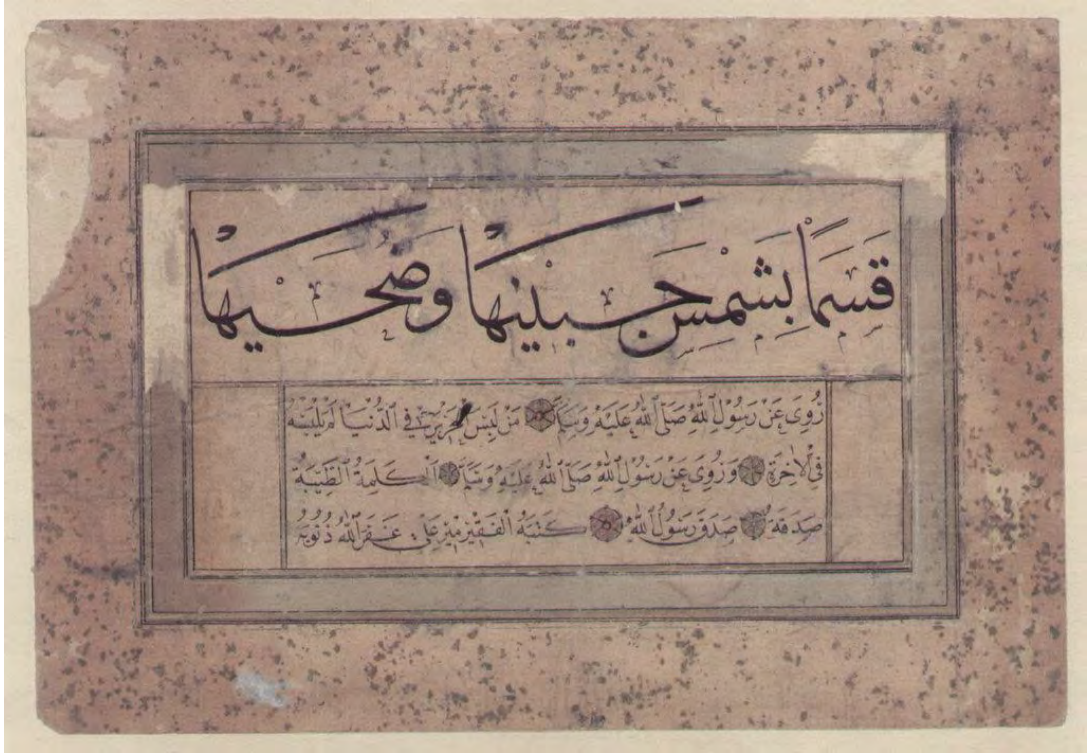 قَسَمًا بِشَمْسِ جَبِينِهَا وَضُحَيْهَا
رُوِيَ عَنْ رَسُولِ اللّٰهِ صَلَّى اللّٰهُ عَلَيْهِ وَسَلَّمَ مَنْ لَبِسَ الْحَرِيرَ فِي الدُّنْيَا لَمْ يَلْبَسْهُ
فِي الْاٰخِرَةِ وَرُوِيَ عَنْ رَسُولِ اللّٰهِ صَلَّى اللّٰهُ عَلَيْهِ وَسَلَّمَ اَلْكَلِمَةُ الطَّيِّبَةُ
صَدَقَةٌ صَدَقَ رَسُولُ اللّٰهِ كَتَبَهُ الْفَقِيرُ مِيرْ عَلِي غَفَرَ اللّٰهُ ذُنُوبَهُ